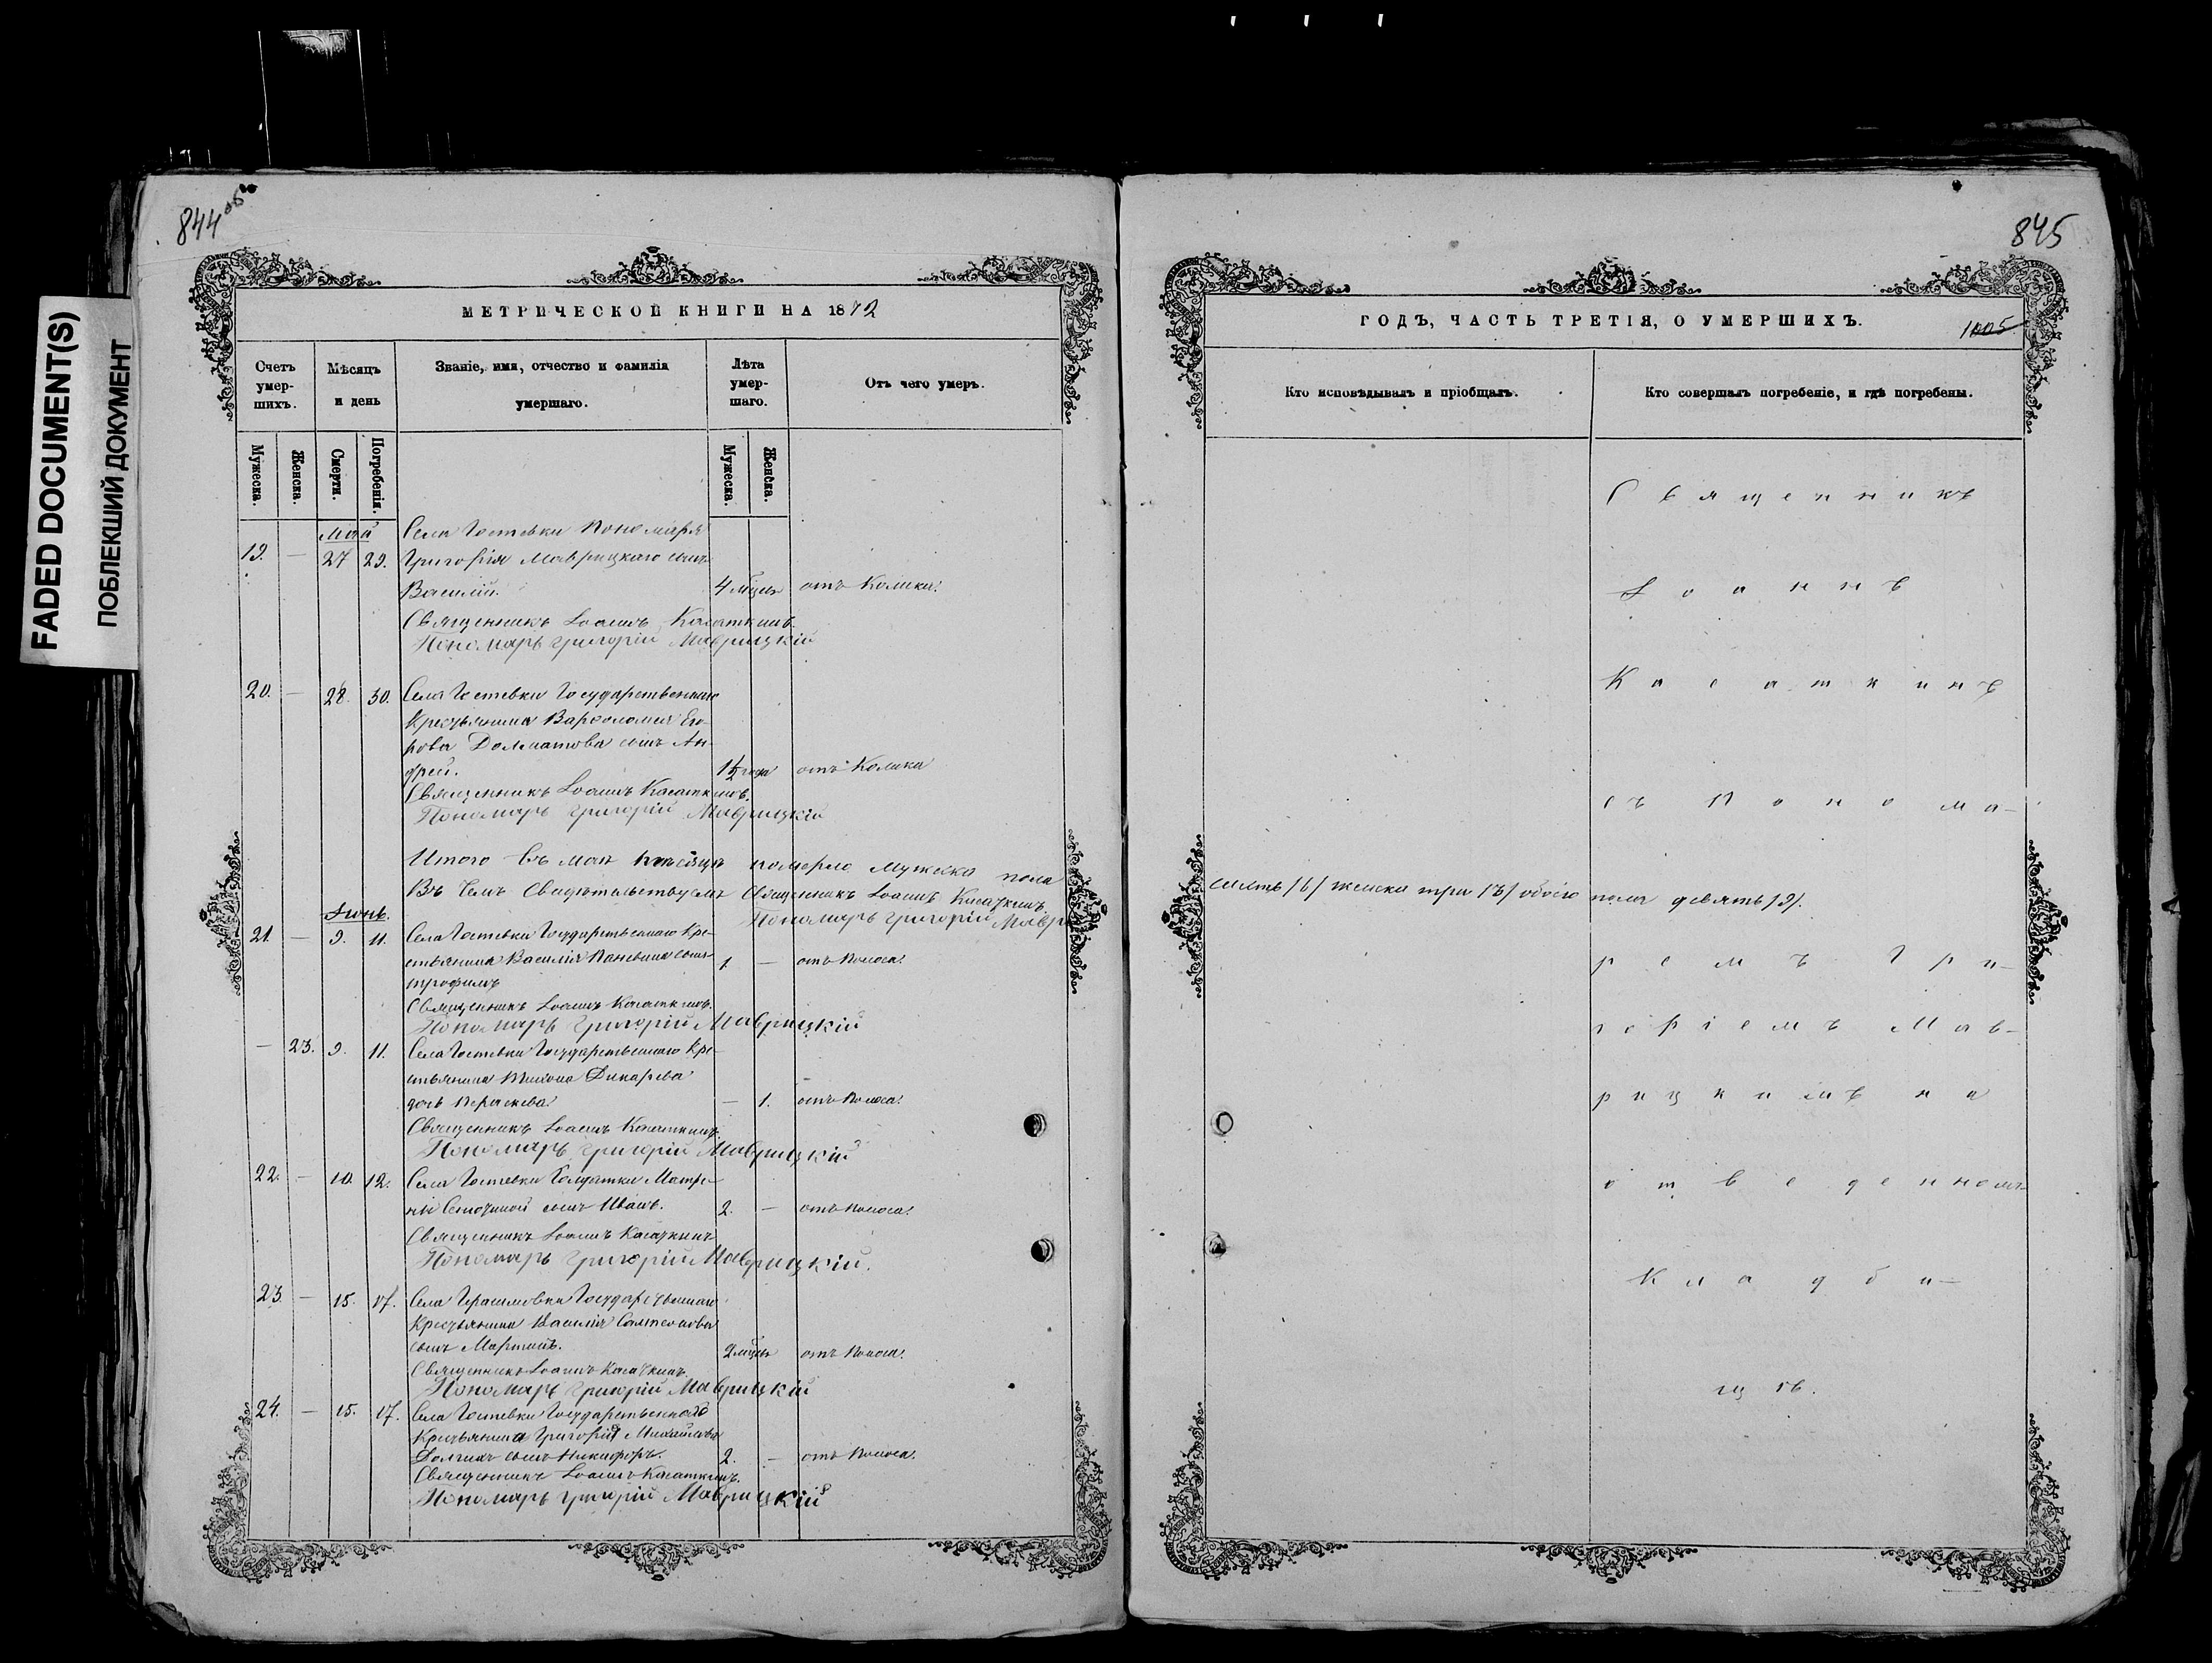 FADED DOCUMENT(S)
ПОБЛЕКШИЙ ДОКУМЕНТ
844
МЕТРИЧЕСКОЙ КНИГИ НА 1872
Счетъ умер-шихъ.
Мѣсяцъ и день
Званіе, имя, отчество и фамилія умершаго.
Лѣта умер-шаго.
Отъ чего умеръ.
Мужеска.
Женска.
Смерти.
Погребенія.
Мужеска.
Женска.
Май
Села Гостевки Пономаря
19. — 27 29. Григорія Маврицкаго сынъ
Василій. 4 мѣсяц отъ Колики.
Священникъ Іоаннъ Касаткинъ.
Пономарь Григорій Маврицкій
20. — 28. 30. Села Гостевки Государственнаго
Крестьянина Варѳоломея Его-
рова Долматова сынъ Ан-
дрей. 1½ года отъ Колики
Священникъ Іоаннъ Касаткинъ.
Пономарь Григорій Маврицкій
Итого въ маѣ мѣсяцѣ померло мужеска пола
Въ чемъ свидѣтельствуемъ Священникъ Іоаннъ Касаткинъ
Пономарь Григорій Мавр
Іюнь.
21. — 9. 11. Села Гостевки Государственнаго Кре-
стьянина Василія сынъ 1. — отъ Поноса.
Трофимъ
Священникъ Іоаннъ Касаткинъ.
Пономарь Григорій Маврицкій
— 23. 9. 11. Села Гостевки Государственнаго Кре-
стьянина Тихона Дикарева
дочь Параскева. — 1. отъ Поноса.
Священникъ Іоаннъ Касаткинъ
Пономарь Григорій Маврицкій
22. — 10. 12. Села Гостевки Солдатки Матре-
ны сынъ Иванъ. 2. — отъ Поноса.
Священникъ Іоаннъ Касаткинъ
Пономарь Григорій Маврицкій.
23 — 15. 17. Села Герасимовки Государственнаго
Крестьянина Василія Сампсонова
сынъ Мартинъ. 2 мѣсяц отъ Поноса.
Священникъ Іоаннъ Касаткинъ.
Пономарь Григорій Маврицкій
24. — 15. 17. Села Гостевки Государственнаго
Крестьянина Григорія Михайлова
Долгихъ сынъ Никифоръ. 2. — отъ Поноса.
Священникъ Іоаннъ Касаткинъ.
Пономарь Григорій Маврицкій
845
ГОДЪ, ЧАСТЬ ТРЕТІЯ, О УМЕРШИХЪ.
1005
Кто исповѣдывалъ и пріобщалъ.
Кто совершалъ погребеніе, и гдѣ погребены.
Священникъ
Іоаннъ
Касаткинъ
съ Понома-
/6/ женска три /3/ обоего пола девять /9/.
ремъ Гри-
горіемъ Мав-
рицкимъ на
отведенномъ
кладби-
щѣ.